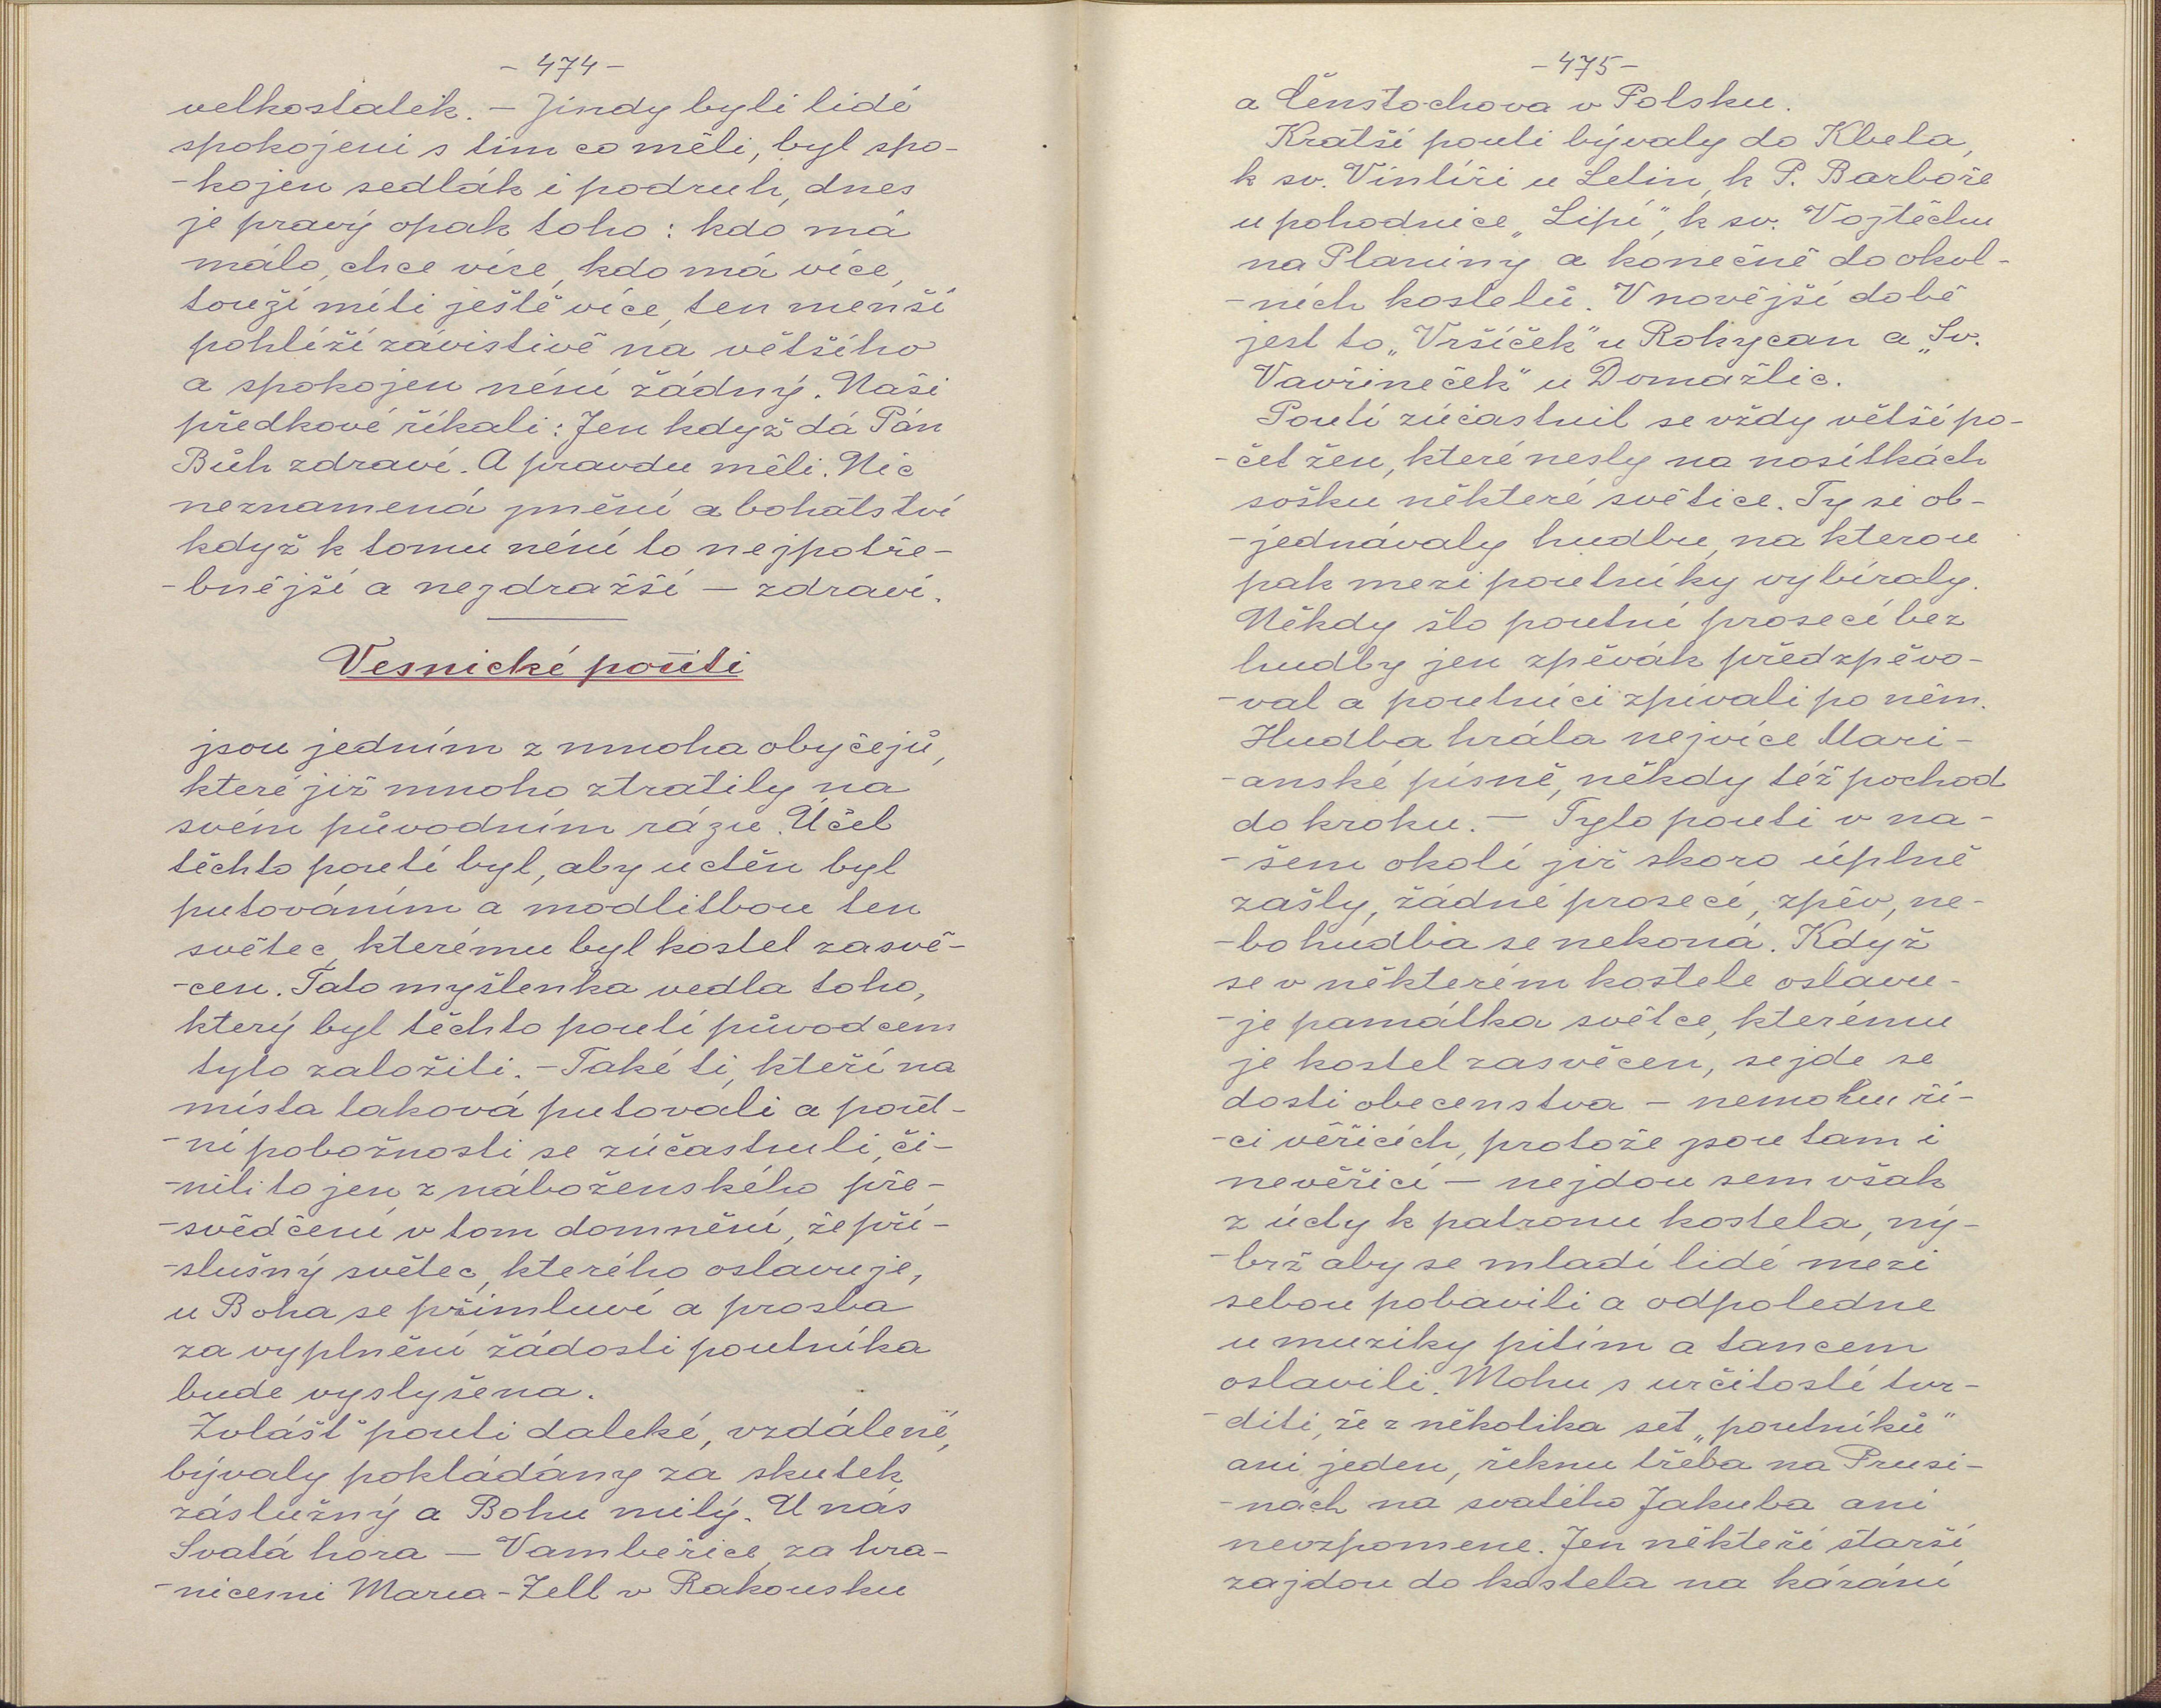 - 474 -
velkostatek. - Jindy byli lidé
spokojeni s tím co měli, byl spo-
-kojen sedlák i podruh, dnes
je pravý opak toho: kdo má
málo, chce více, kdo má více,
touží míti ještě více, ten menší
pohlíží závistivě na většího
a spokojen néní žádný. Naši
předkové říkali: Jen když dá Pán
Bůh zdraví. A pravdu měli. Nic
neznamená jmění a bohatství
když k tomu néní to nejpotře-
-bnější a nejdražší — zdraví.
Vesnické pouti
jsou jedním z mnoha obyčejů,
které již mnoho ztratily na
svém původním rázu. Účel
těchto poutí byl, aby uctěn byl
putováním a modlitbou ten
světec, kterému byl kostel zasvě-
-cen. Tato myšlenka vedla toho,
který byl těchto poutí původcem
tyto založiti. - Také ti, kteří na
místa taková putovali a pout-
-ní pobožnosti se zúčastnuli, či-
-nili to jen z náboženského pře-
-svědčení v tom domnění, že pří-
-slušný světec, kterého oslavuje,
u Boha se přimluví a prosba
za vyplnění žádosti poutníka
bude vyslyšena.
Zvlášť pouti daleké, vzdálené,
bývaly pokládány za skutek
záslužný a Bohu milý. U nás
Svatá hora — Vambeřice, za hra-
-nicemi Maria-Zell v Rakousku
- 475 -
a Čenstochova v Polsku.
Kratší pouti bývaly do Kbela,
k sv. Vintíři u Letin, k P. Barboře
u pohodnice „Lipí", k sv. Vojtěchu
na Planiny a konečně do okol-
-ních kostelů. V novější době
jest to „Vršíček" u Rokycan a „Sv.
Vavřineček" u Domažlic.
Poutí zúčastnil se vždy větší po-
-čet žen, které nesly na nosítkách
sošku některé světice. Ty si ob-
-jednávaly hudbu, na kterou
pak mezi poutníky vybíraly.
Někdy šlo poutní prosecí bez
hudby jen zpěvák předzpěvo-
-val a poutníci zpívali po něm.
Hudba hrála nejvíce Mari-
-anské písně, někdy též pochod
do kroku. — Tyto pouti v na-
-šem okolí již skoro úplně
zašly, žádné prosecí, zpěv, ne-
-bo hudba se nekoná. Když
se v některém kostele oslavu-
-je památka světce, kterému
je kostel zasvěcen, sejde se
dosti obecenstva — nemohu ří-
-ci věřících, protože jsou tam i
nevěřící — nejdou sem však
z úcty k patronu kostela, ný-
-brž aby se mladí lidé mezi
sebou pobavili a odpoledne
u muziky pitím a tancem
oslavili. Mohu s určitostí tvr-
-diti, že z několika set „poutníků"
ani jeden, řeknu třeba na Prusi-
-nách na svatého Jakuba ani
nevzpomene. Jen někteří starší
zajdou do kostela na kázání